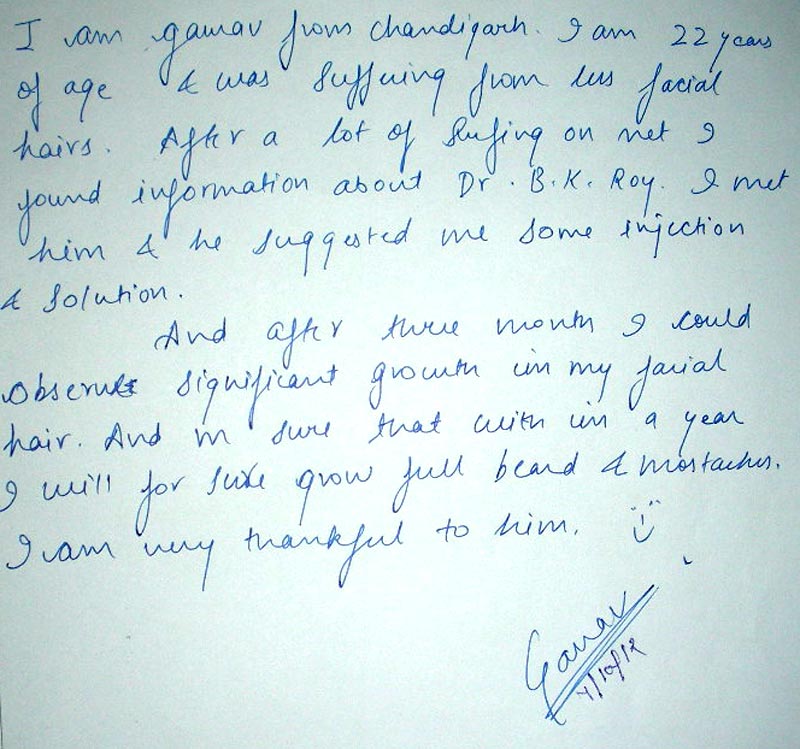 I am gaurav from chandigarh. I am 22 years
of age & was suffering from less facial
hairs. After a lot of surfing on net I
found information about Dr. B.K. Roy. I met
him & he suggested me some injection
& solution.
And after three month I could
observe significant growth in my facial
hair. And m sure that with in a year
I will for sure grow full beard & mostaches.
I am very thankful to him. :)
Gaurav
4/10/12